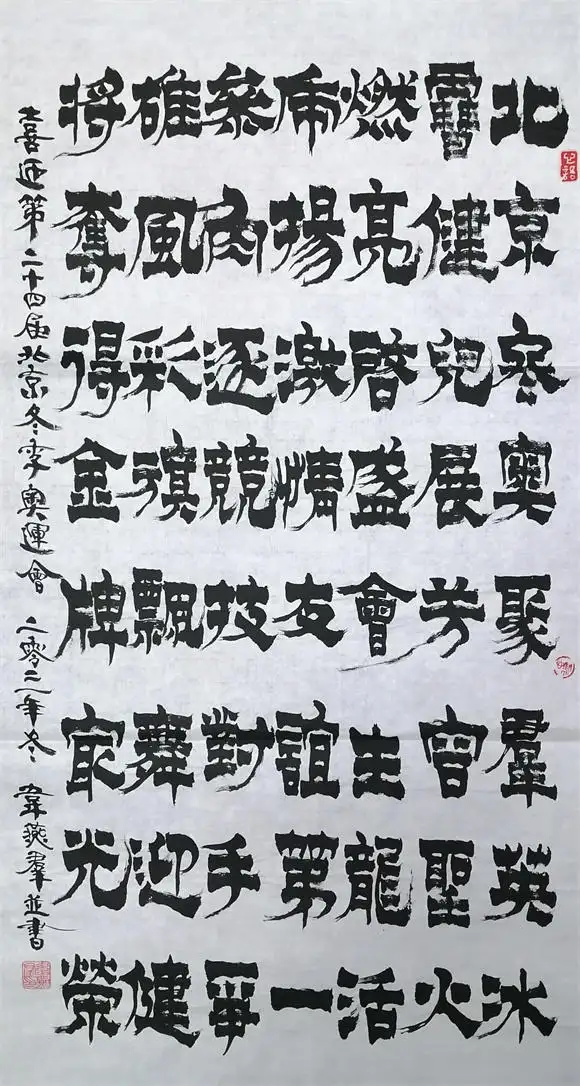 北京寒奧聚羣英冰
雪健兒展芳容聖火
燃亮啓盛會生龍活
虎揚激情友誼第一
叅角逐競技對手爭
雄風彩旗飄舞迎健
將奪得金牌冣光榮
喜迎第二十四届北京冬季奧運會 二零二二年冬 韋燕羣並書